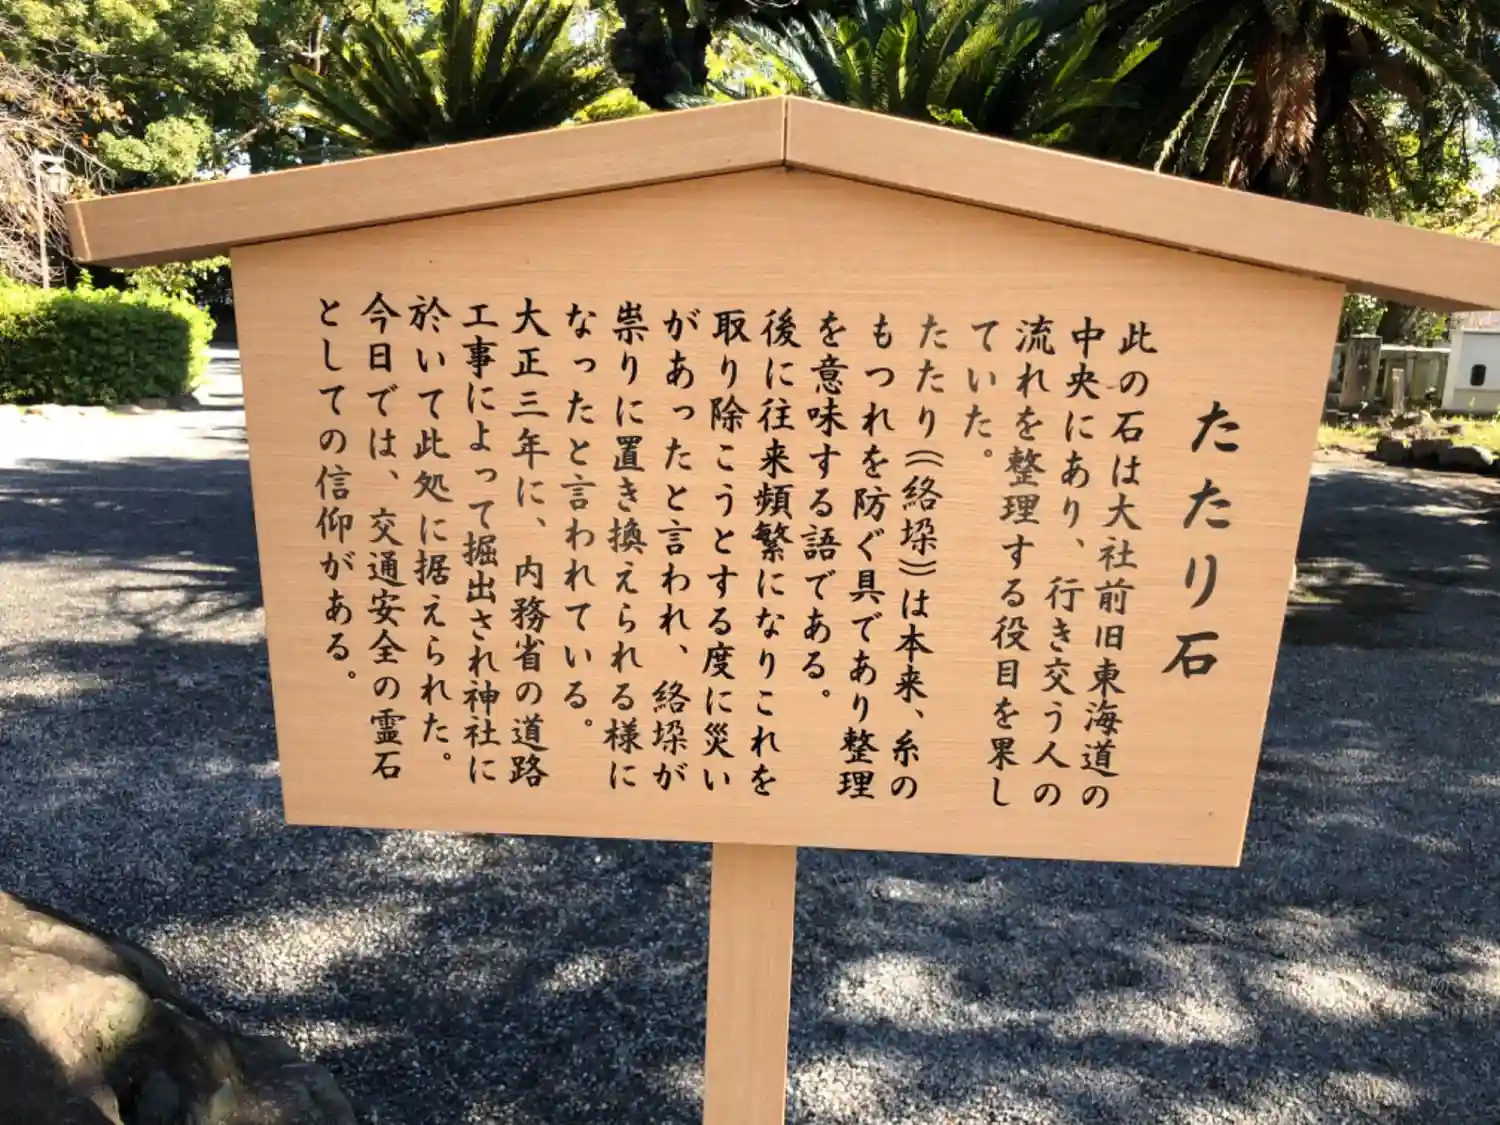 たたり石
此の石は大社前旧東海道の
中央にあり、行き交う人の
流れを整理する役目を果し
ていた。
たたり((絡垜))は本来、糸の
もつれを防ぐ具であり整理
を意味する語である。
後に往来頻繁になりこれを
取り除こうとする度に災い
があったと言われ、絡垜が
祟りに置き換えられる様に
なったと言われている。
大正三年に、内務省の道路
工事によって掘出され神社に
於いて此処に据えられた。
今日では、交通安全の霊石
としての信仰がある。